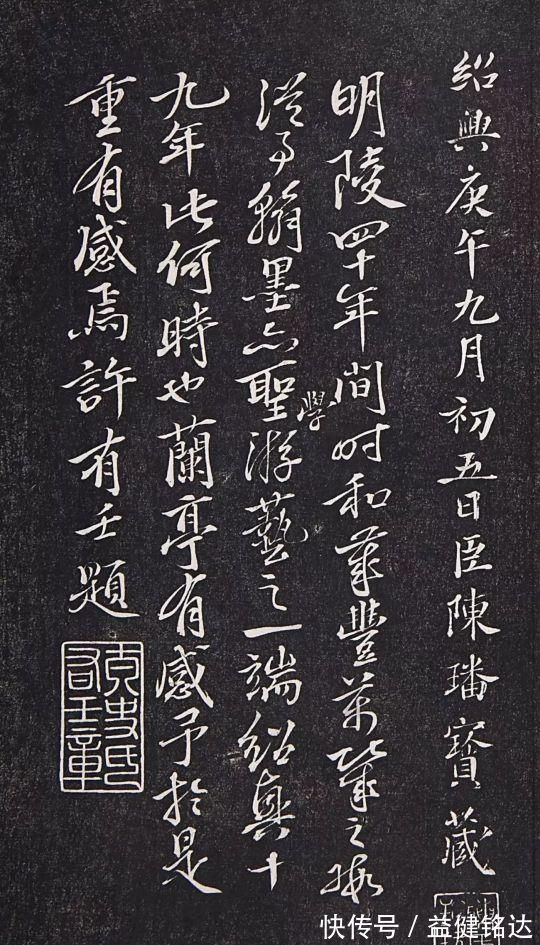 紹興庚午九月初五日臣陳璠寶藏
明陵四十年間時和歲豐萬幾之暇
從事翰墨亦聖學游藝之一端紹興十
九年此何時也蘭亭有感予於是
重有感焉許有壬題
有壬章
快传号 / 益健铭达